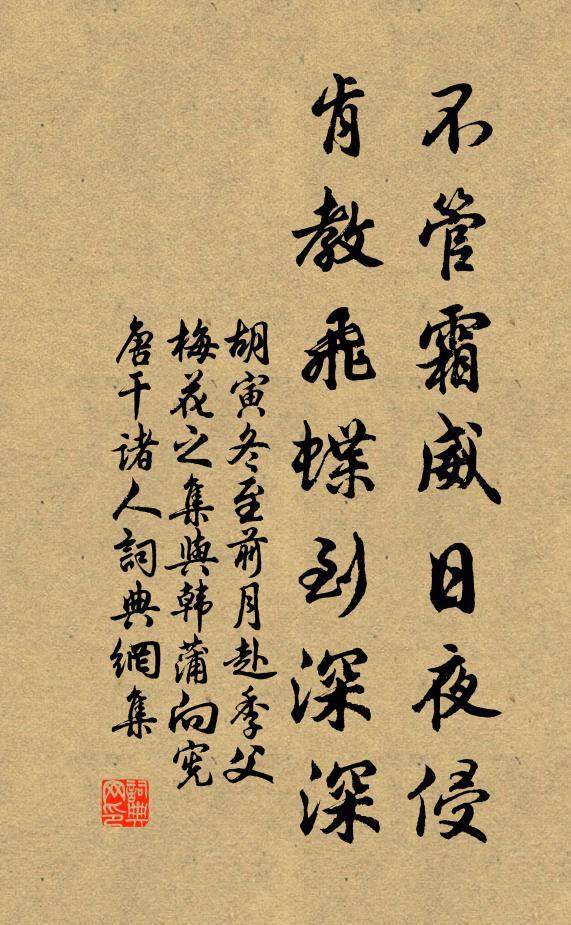 不管霜威日夜侵
肯教飛蝶到深深
胡寅冬至前月赴季父
梅花之集與韩蒲向宪
唐干諸人詞典網集
詞典網印